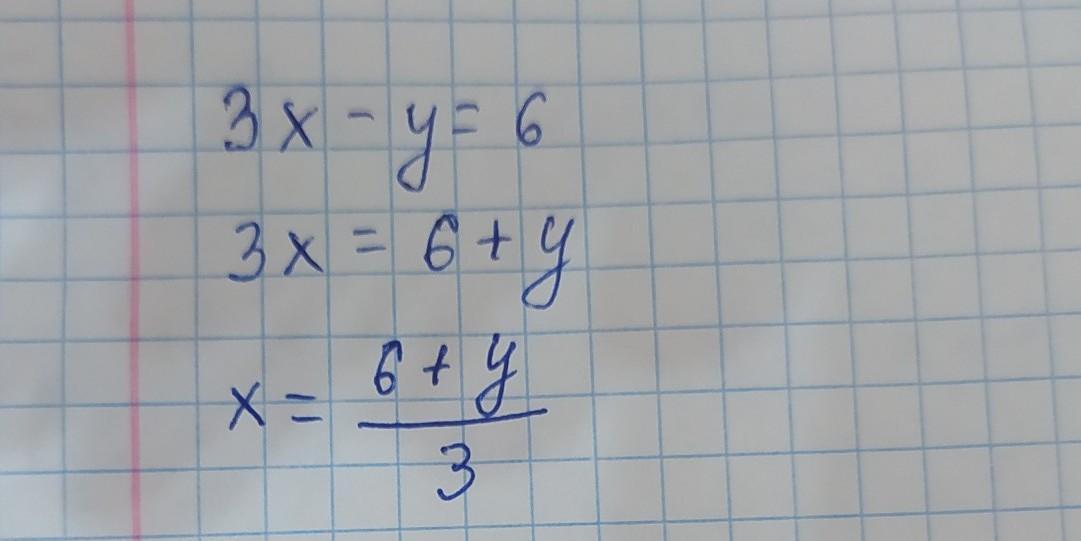 3x - y = 6
3x = 6 + y
x = \frac{6 + y}{3}